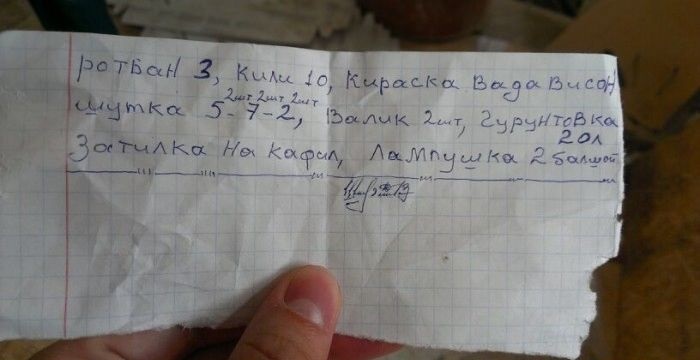 ротБан 3, Кили 10, Кираска Вада Висон
шутка 5-7-2, Валик 2шт, Гурунтовка
2шт 2шт 2шт
20л
Застилка На кафил, Лампушка 2 балшой